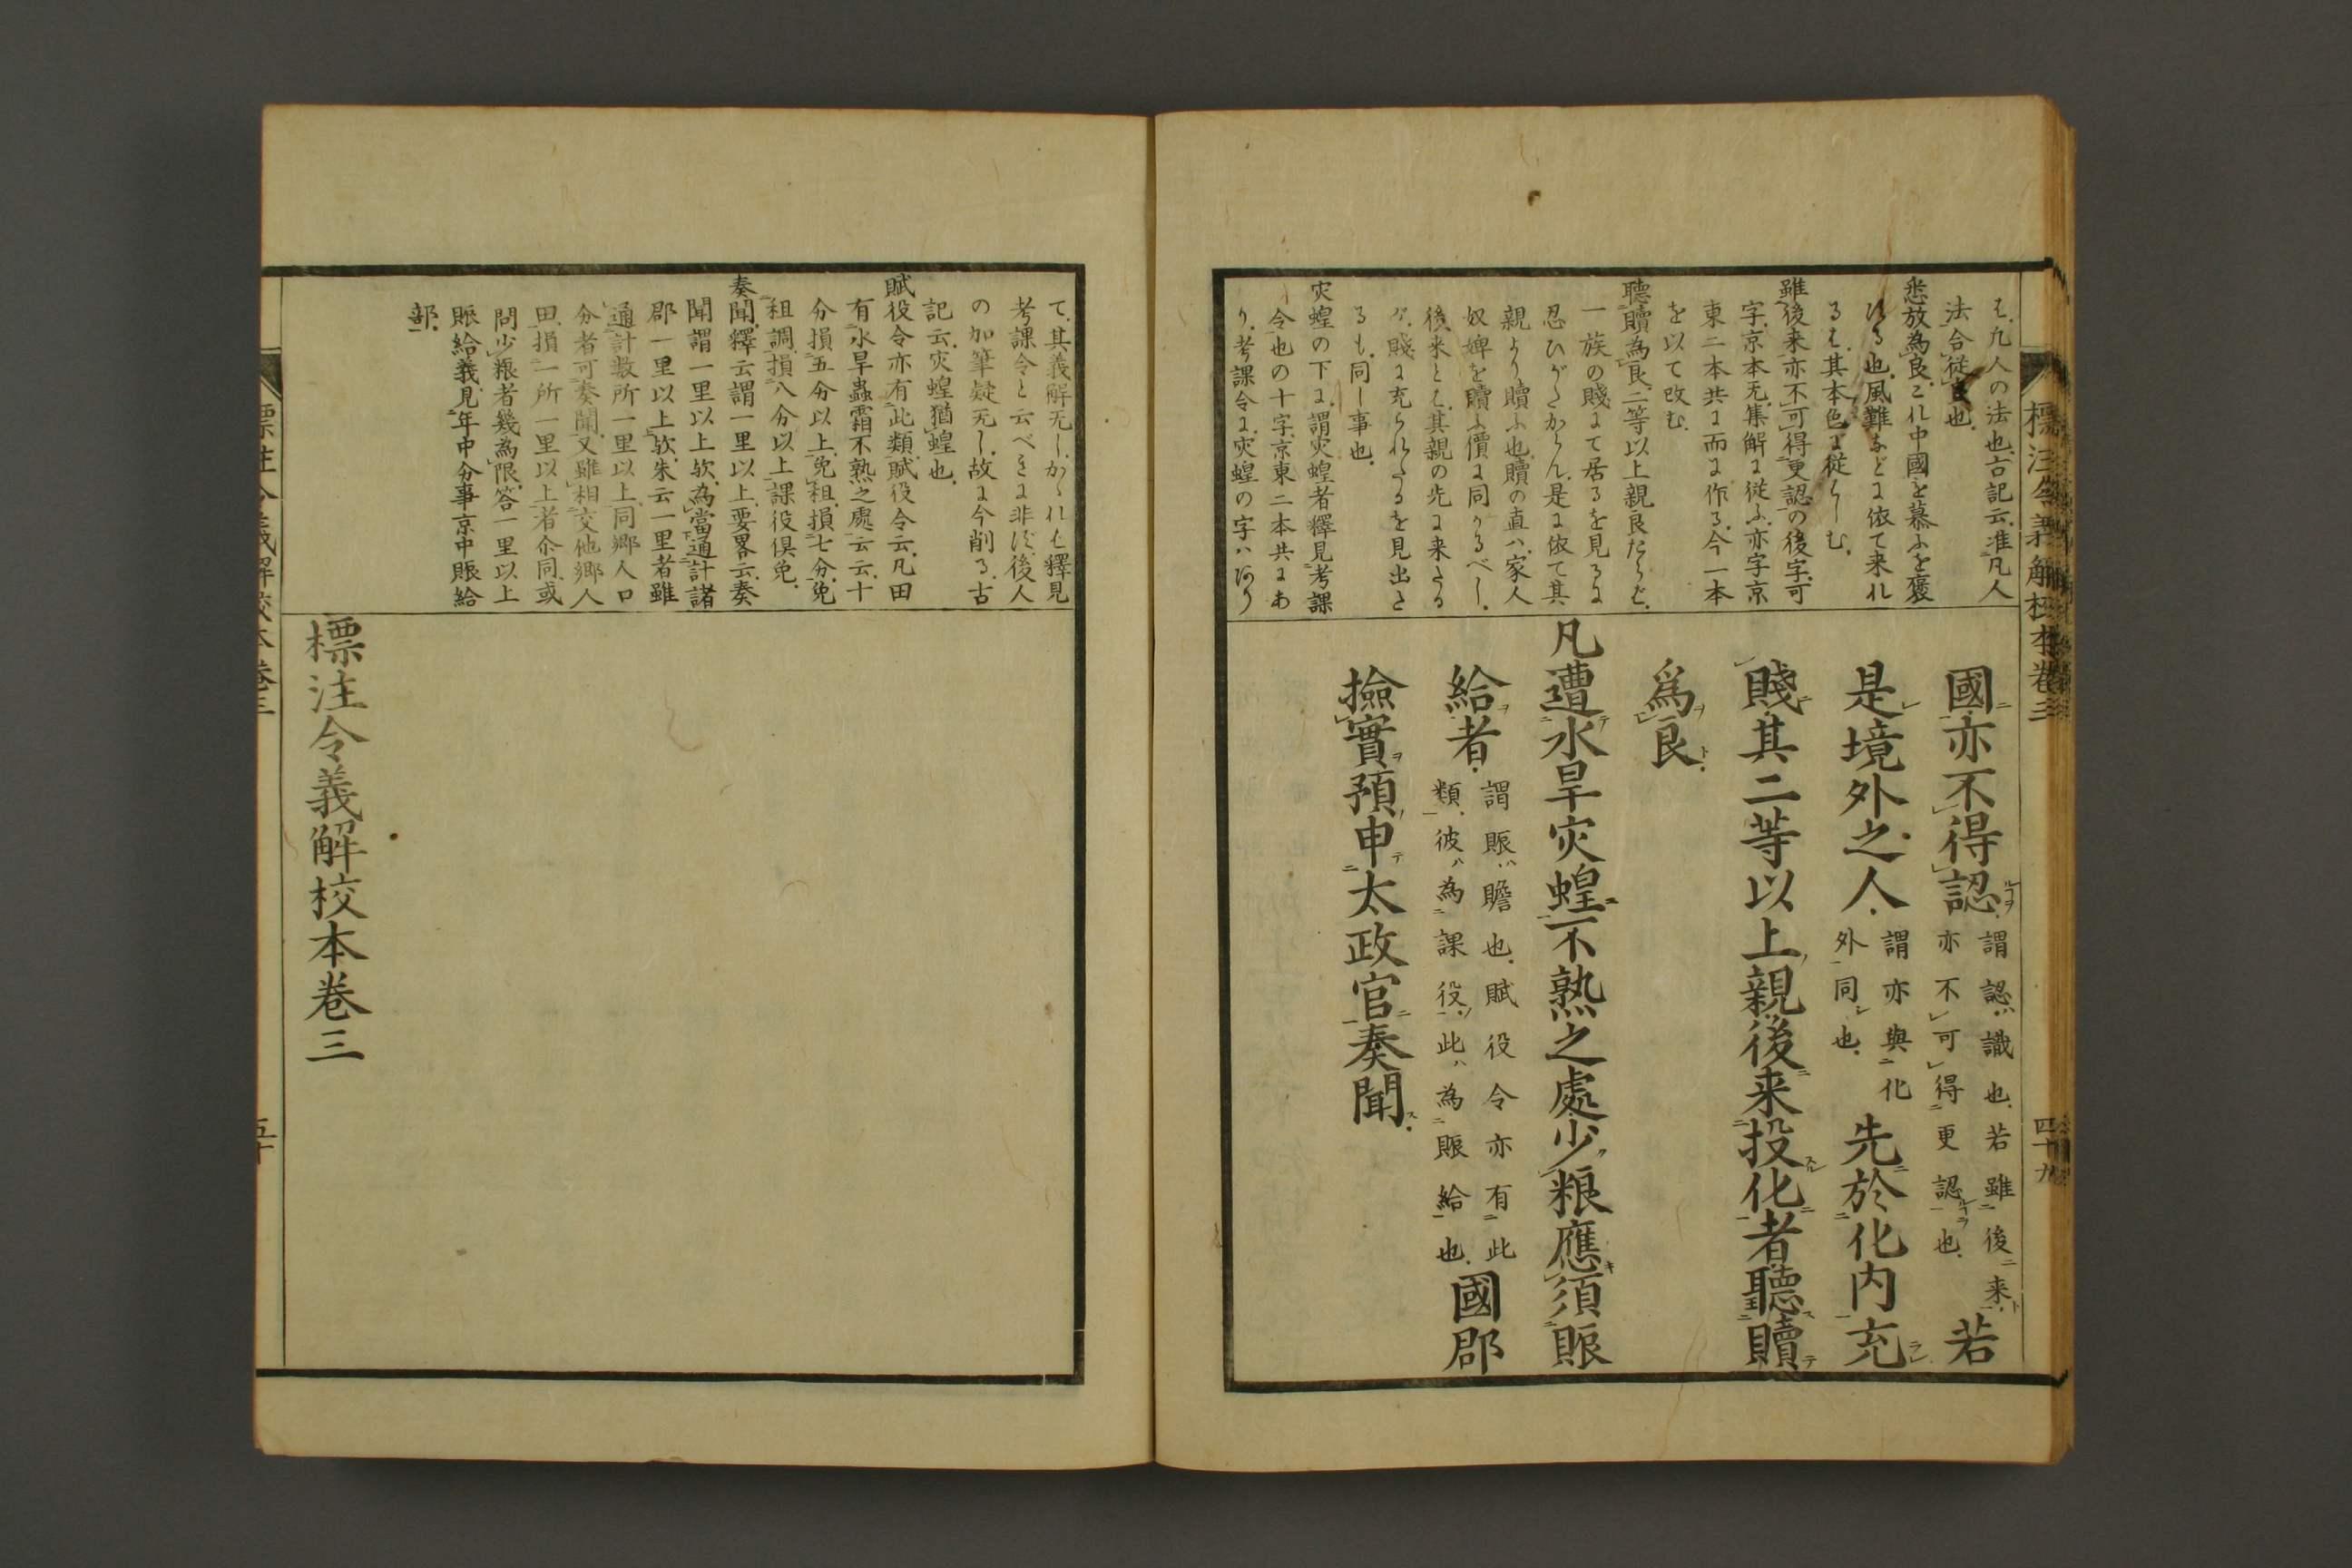 標注令義解校本卷三
四十九
は凡人の法也古記云准凡人
法合從良也
悉放為良これ中國を慕ふを褒
る也風難などに依て来れ
るは其本色に從しむ
雖後来亦不可得更認の後字可
字京本无集解に從ふ亦字京
東二本共に而に作る今一本
を以て改む
聽贖為良二等以上親良ならば
一族の賤にて居るを見るに
忍ひがたからん是に依て其
親より贖ふ也贖の直ハ家人
奴婢を贖ふ價に同かるべし
後来とは其親の先に来たる
が賤に充られたるを見出さ
るも同し事也
灾蝗の下に謂灾蝗者釋見考課
令也の十字京東二本共にあ
り考課令に灾蝗の字ハあり
國亦不得認
謂認識也若雖後来
亦不可得更認也
若
是境外之人
謂亦與化
外同也
先於化内充
賤其二等以上親後来投化者聽贖
為良
凡遭水旱灾蝗不熟之處少粮應須賑
給者
謂賑贍也賦役令亦有此
類彼為課役此為賑給也
國郡
撿實預申太政官奏聞
て其義解无しかゝれは釋見
考課令と云べきに非ず後人
の加筆疑无し故に今削る古
記云灾蝗猶蝗也
賦役令亦有此類賦役令云凡田
有水旱蟲霜不熟之處云云十
分損五分以上免租損七分免
租調損八分以上課役俱免
奏聞釋云謂一里以上要畧云奏
聞謂一里以上欤為當通計諸
郡一里以上欤朱云一里者雖
通計数所一里以上同郷人口
分者可奏聞又雖相交他郷人
田損一所一里以上者尒同或
問少粮者幾為限答一里以上
賑給義見年中分事京中賑給
部
標注令義解校本卷三
標注令義解校本卷三
五十